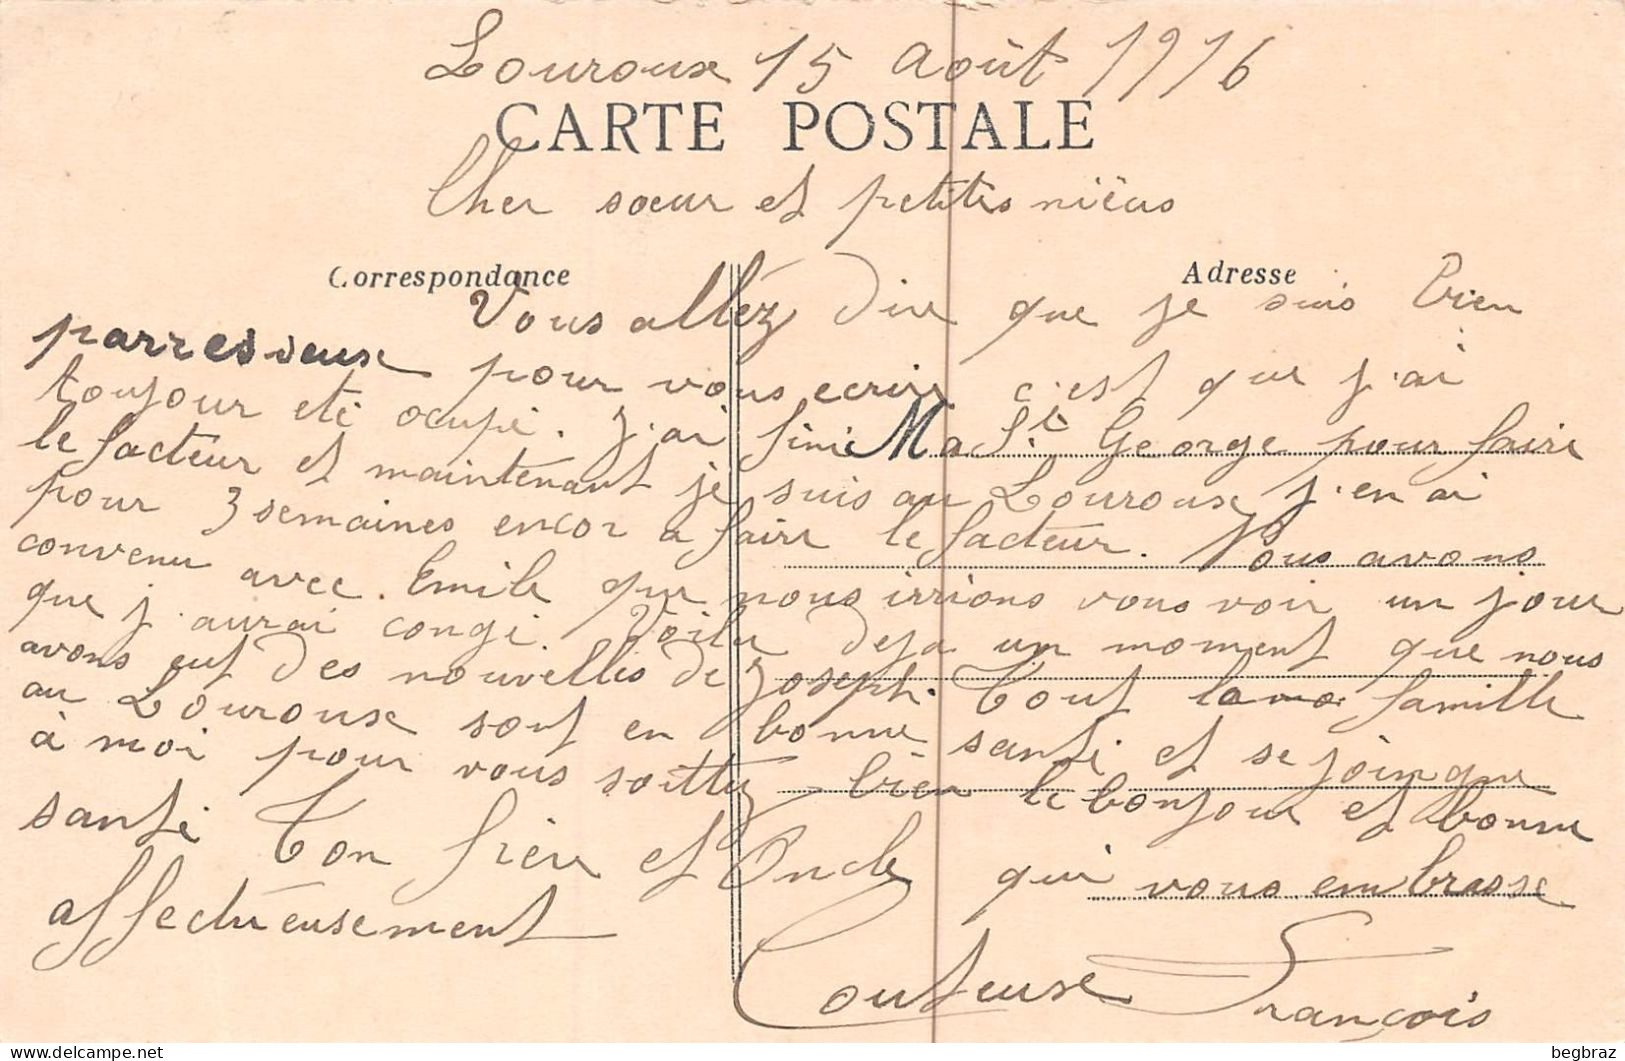 Louroux 15 Août 1916
CARTE POSTALE
Cher sœur et petites niëus
Correspondance
Adresse
Vous alléz dire que je suis bien
parresseux pour vous ecrire c'est que j'ai
toujour eté ocupé. J'ai fini Ma St George pour faire
le facteur et maintenant je suis au Louroux j'en ai
pour 3 semaines encor a faire le facteur. Nous avons
convenu avec Emile que nous irrions vous voir un jour
que j'aurai congé. Voila deja un moment que nous
avons eut des nouvelles de Joseph. Tout la famille
au Louroux sont en bonne santé et se joingue
à moi pour vous soittez bien le bonjour et bonne
santé Ton frère et Oncle qui vous embrasse
affectueusement
Couteux François
begbraz